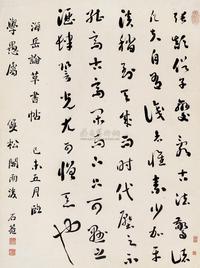 張顛俗子變亂古法驚諸
凡夫自有識者懷素少加平
淡稍到天成而時代壓之不
能高古高閑而下但可懸之
酒肆䛒光尤可憎惡也
海岳論草書帖 己未五月臨
學愚屬 雙松閣雨後 石菴